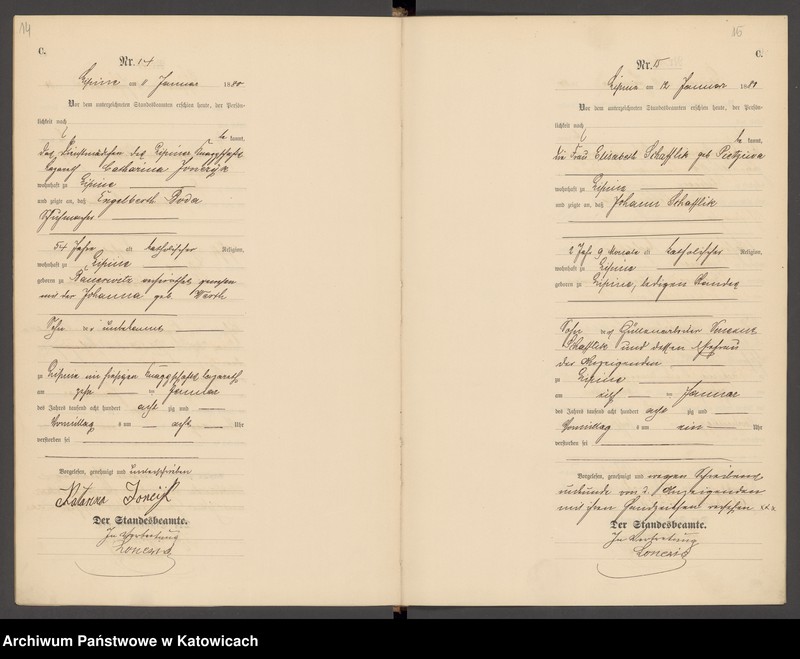 14
C.
Nr. 14
Lipine am 11 Januar 1880
Vor dem unterzeichneten Standesbeamten erschien heute, der Persön-
lichkeit nach
be kannt,
das Dienstmädchen des Lipiner Knappschafts
Lazareth Catharina Jonczyk
wohnhaft zu Lipine
und zeigte an, daß Engelberth Boda
Schuhmacher
54 Jahre alt katholischer Religion,
wohnhaft zu Lipine
geboren zu Bauerwitz verheirathet gewesen
mit der Johanna geb. Warth
Sohn des unbekannt
zu Lipine im hiesigen Knappschafts Lazareth
am Januar
des Jahres tausend acht hundert acht zig und
Vormittag um acht Uhr
verstorben sei
Vorgelesen, genehmigt und unterschrieben
Katarina Joncijk
Der Standesbeamte.
In Vertretung
15
C.
Nr. 15
Lipine am 12 Januar 1880
Vor dem unterzeichneten Standesbeamten erschien heute, der Persön-
lichkeit nach
be kannt,
die Frau Elisabeth Schafflik geb.
wohnhaft zu Lipine
und zeigte an, daß Johann Schafflik
2 Jahr 9 Monate alt katholischer Religion,
wohnhaft zu Lipine
geboren zu Lipine, ledigen Standes
Sohn des Hüttenarbeiter Vincent
Schafflik und dessen Ehefrau
der Anzeigenden
zu Lipine
am elf Januar
des Jahres tausend acht hundert acht zig und
Vormittag um ein Uhr
verstorben sei
Vorgelesen, genehmigt und wegen Schreibens
unkunde von d. Anzeigenden
mit ihren Handzeichen versehen xxx
Der Standesbeamte.
In Vertretung
Archiwum Państwowe w Katowicach